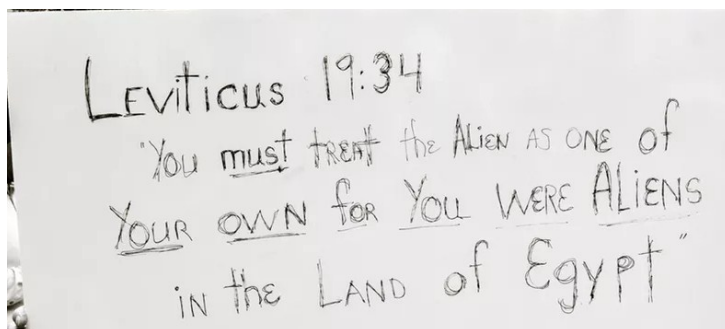 LEViTicus 19:34
"You must TREAT the ALiEN AS ONE of
YOUR OWN foR YOU WERE ALiENS
iN the LAND of Egypt"